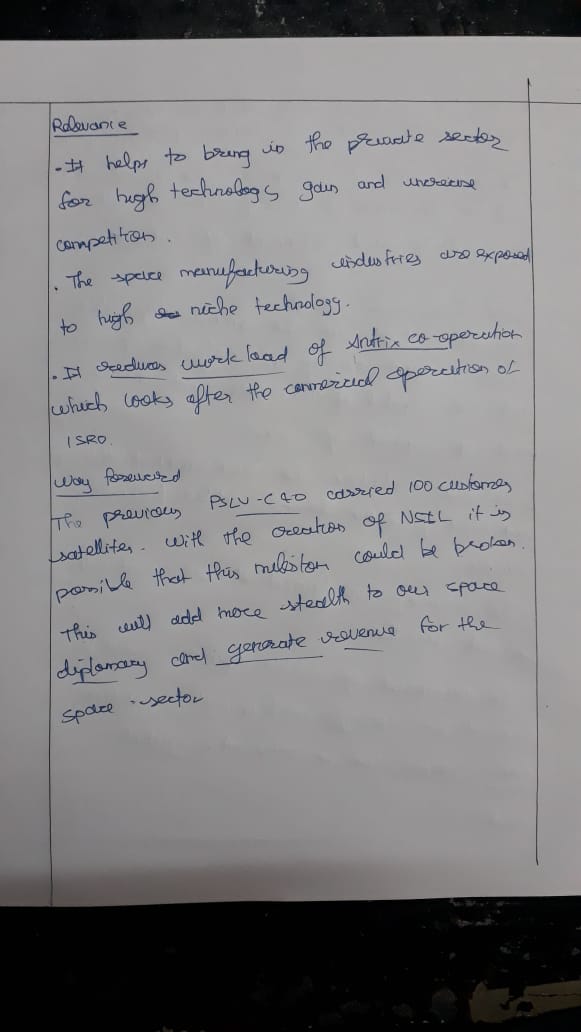 Relevance
. It helps to bring in the private sector
for high technology gain and increase
competition.
. The space manufacturing industries are exposed
to high niche technology.
. It reduces work load of Antrix co-operation
which looks after the commercial operation of
ISRO.
Way forward
The previous PSLV-C40 carried 100 customer
satellites. With the creation of NSIL it is
possible that this could be broken.
This will add more stealth to our space
diplomacy and generate revenue for the
space sector